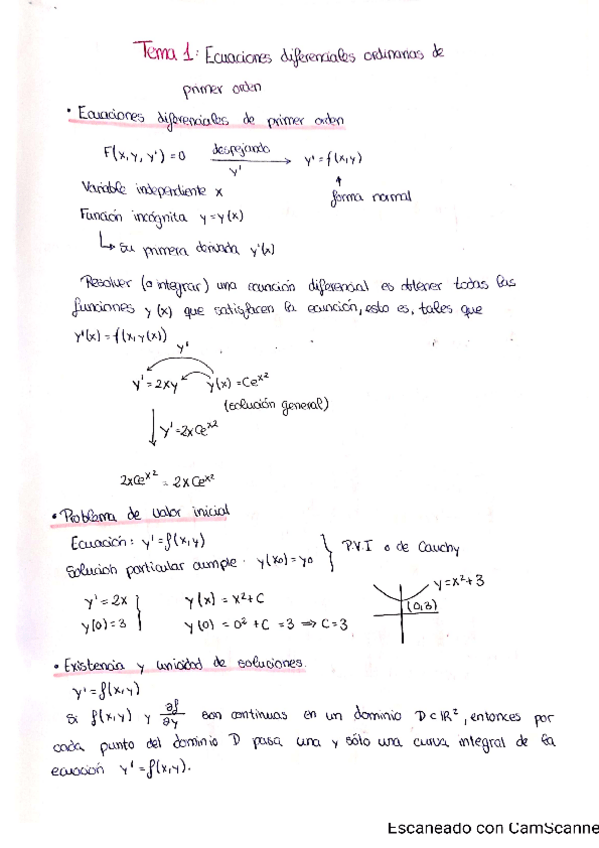 Tema 1: Ecuaciones diferenciales ordinarias de
primer orden
• Ecuaciones diferenciales de primer orden
F(x, y, y') = 0 despejando y' → y' = f(x,y)
Variable independiente x
forma normal
Función incógnita y = y(x)
↳ su primera derivada y'(x)
Resolver (o integrar) una ecuación diferencial es obtener todas las
funciones y(x) que satisfacen la ecuación, esto es, tales que
y'(x) = f(x, y(x))
y'
y' = 2xy y(x) = Ce^{x^2}
(solución general)
y' = 2xCe^{x^2}
2xCe^{x^2} = 2xCe^{x^2}
• Problema de valor inicial
Ecuación: y' = f(x,y)
Solución particular cumple: y(x0) = y0 } P.V.I o de Cauchy
y' = 2x y(x) = x² + C y = x² + 3
y(0) = 3 y(0) = 0² + C = 3 ⇒ C = 3 (0,3)
• Existencia y unicidad de soluciones.
y' = f(x,y)
Si f(x,y) y ∂f/∂y son continuas en un dominio D ⊂ ℝ², entonces por
cada punto del dominio D pasa una y sólo una curva integral de la
ecuación y' = f(x,y).
Escaneado con CamScanne